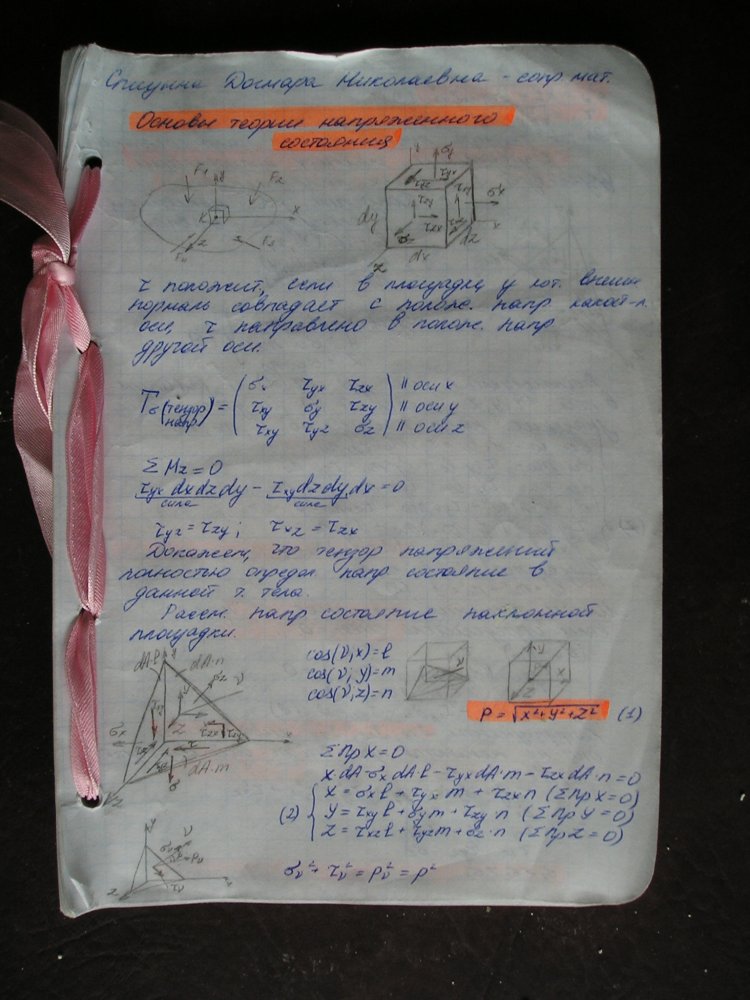 Николаевна - сопр. мат.
Основы теории напряженного
состояния
F1 F2 y x K z F4 F3
y σy τyx τyz τzy τxy σx x dy τzx σz dz dx z
τ положит, если в площадке у кот. внешн
нормаль совпадает с полож. напр какой-л.
оси, τ направлено в полож. напр
другой оси.
Tσ (тензор напр) = ( σx τyx τzx ) || оси x
( τxy σy τzy ) || оси y
( τxy τyz σz ) || оси z
Σ Mz = 0
τyx dx dz dy - τxy dz dy dx = 0
сила сила
τyz = τzy ; τxz = τzx
Докажем, что тензор напряжений
полностью определ. напр состояние в
данной т. тела.
Рассм. напр состояние наклонной
площадки.
dA·l dA·n
cos(ν,x) = l
cos(ν,y) = m
cos(ν,z) = n
P = √X²+Y²+Z² (1)
σx dA·m
Σ Пр X = 0
X·dA - σx dA·l - τyx dA·m - τzx dA·n = 0
X = σx l + τyx m + τzx n (Σ Пр X = 0)
(2) Y = τxy l + σy m + τzy n (Σ Пр Y = 0)
Z = τxz l + τyz m + σz·n (Σ Пр Z = 0)
σν² + τν² = Pν² = P²